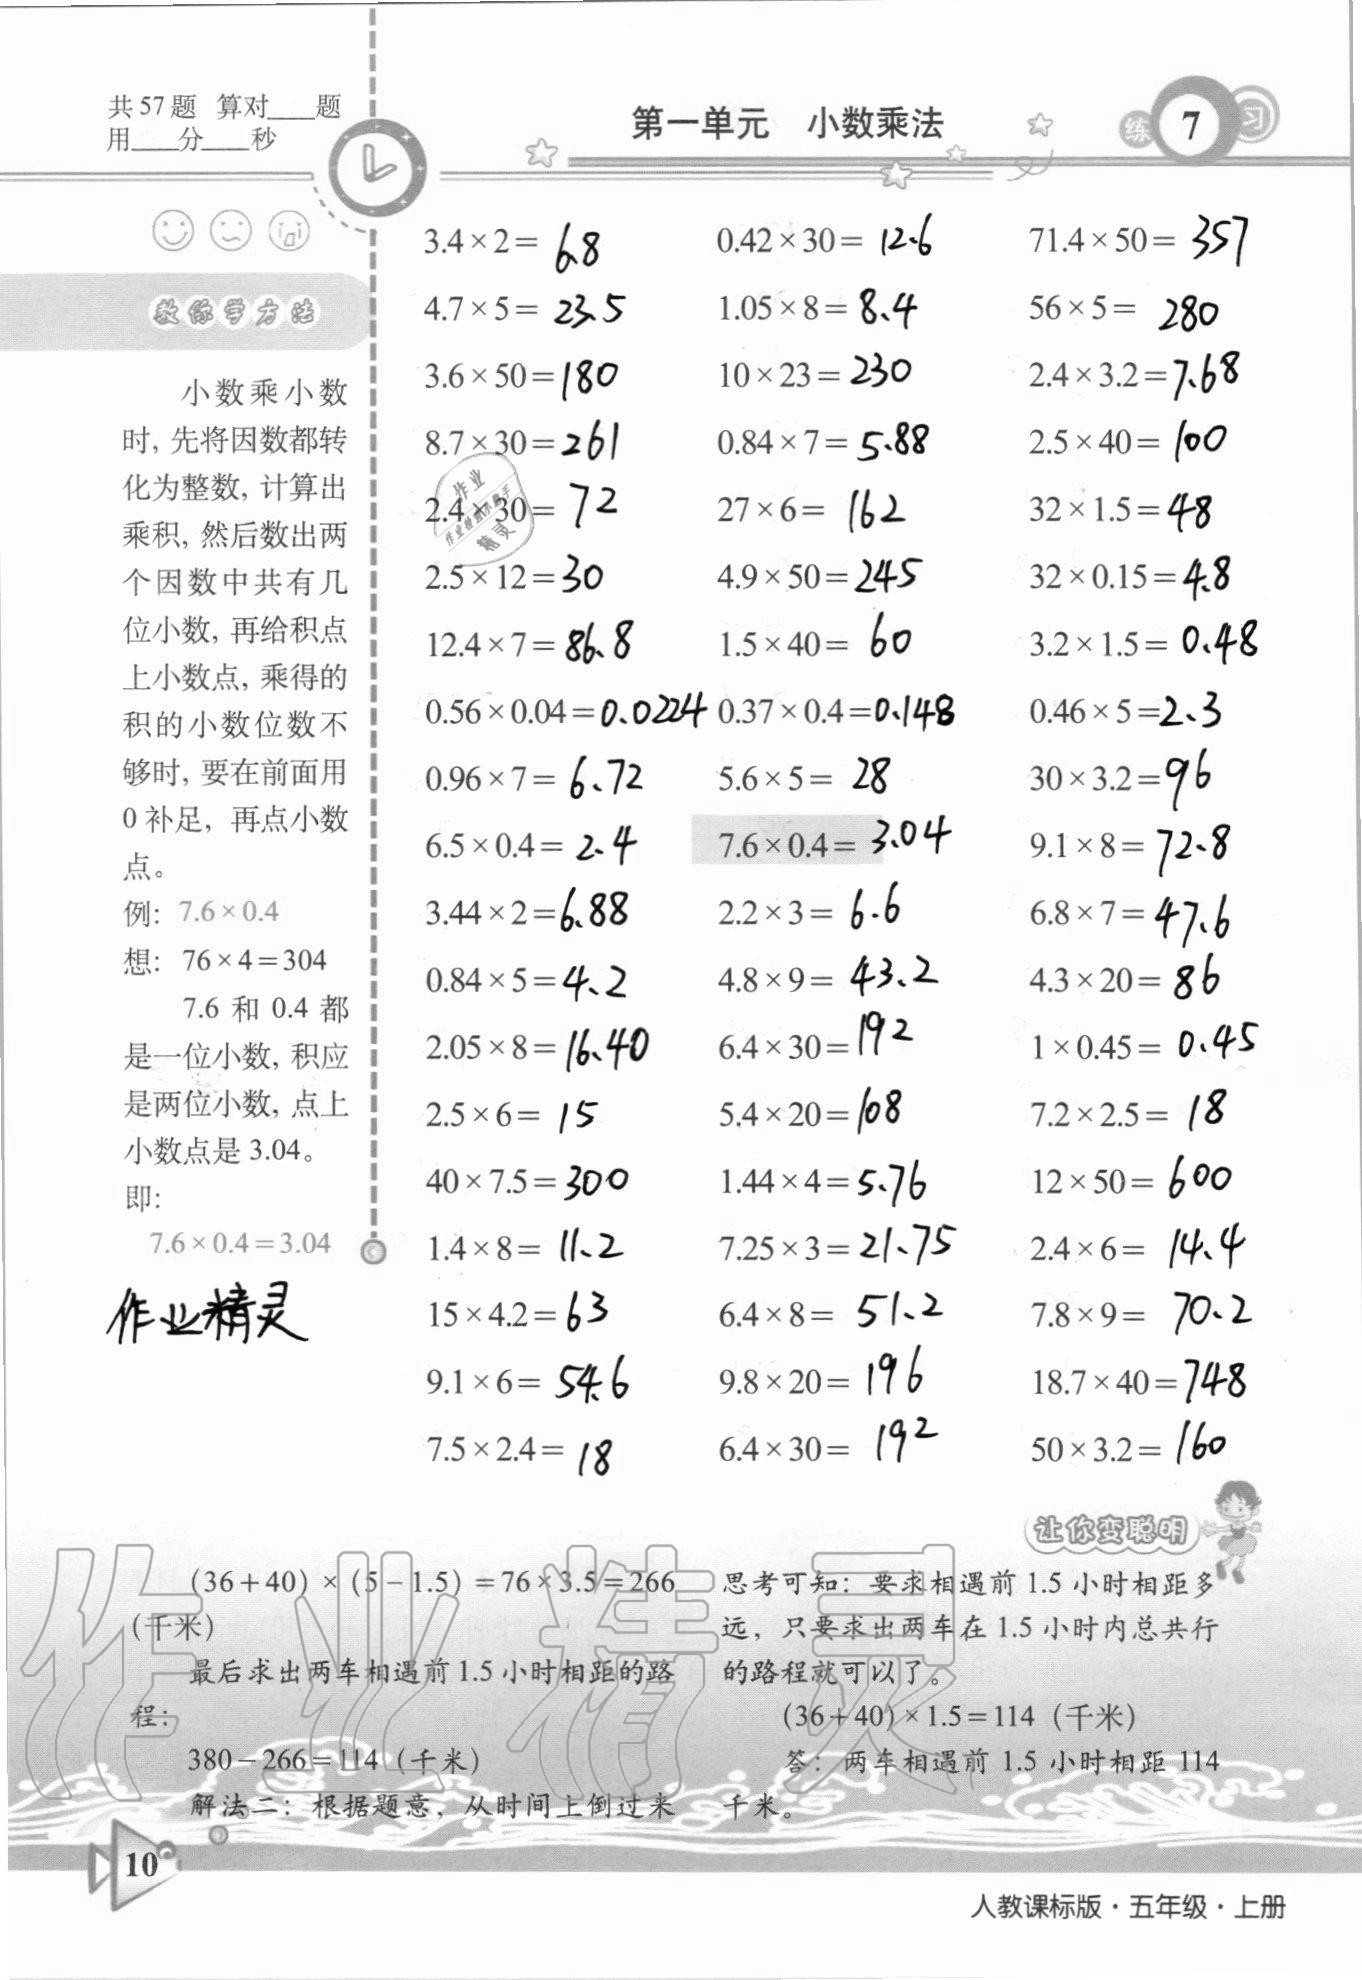 共57题 算对____题
用____分____秒
第一单元 小数乘法
练 7 习
教你学方法
小数乘小数
时,先将因数都转
化为整数,计算出
乘积,然后数出两
个因数中共有几
位小数,再给积点
上小数点,乘得的
积的小数位数不
够时,要在前面用
0补足,再点小数
点。
例: 7.6×0.4
想: 76×4=304
7.6 和 0.4 都
是一位小数,积应
是两位小数,点上
小数点是3.04。
即:
7.6×0.4=3.04
作业精灵
3.4×2= 6.8 0.42×30= 12.6 71.4×50= 357
4.7×5= 23.5 1.05×8= 8.4 56×5= 280
3.6×50= 180 10×23= 230 2.4×3.2= 7.68
8.7×30= 261 0.84×7= 5.88 2.5×40= 100
2.4×30= 72 27×6= 162 32×1.5= 48
2.5×12= 30 4.9×50= 245 32×0.15= 4.8
12.4×7= 86.8 1.5×40= 60 3.2×1.5= 0.48
0.56×0.04= 0.0224 0.37×0.4= 0.148 0.46×5= 2.3
0.96×7= 6.72 5.6×5= 28 30×3.2= 96
6.5×0.4= 2.4 7.6×0.4= 3.04 9.1×8= 72.8
3.44×2= 6.88 2.2×3= 6.6 6.8×7= 47.6
0.84×5= 4.2 4.8×9= 43.2 4.3×20= 86
2.05×8= 16.40 6.4×30= 192 1×0.45= 0.45
2.5×6= 15 5.4×20= 108 7.2×2.5= 18
40×7.5= 300 1.44×4= 5.76 12×50= 600
1.4×8= 11.2 7.25×3= 21.75 2.4×6= 14.4
15×4.2= 63 6.4×8= 51.2 7.8×9= 70.2
9.1×6= 54.6 9.8×20= 196 18.7×40= 748
7.5×2.4= 18 6.4×30= 192 50×3.2= 160
作业
作业检查小助手
精灵
让你变聪明
(36+40)×(5-1.5)=76×3.5=266
(千米)
最后求出两车相遇前1.5小时相距的路
程:
380-266=114(千米)
解法二:根据题意,从时间上倒过来
思考可知:要求相遇前1.5小时相距多
远,只要求出两车在1.5小时内总共行
的路程就可以了。
(36+40)×1.5=114(千米)
答:两车相遇前1.5小时相距114
千米。
作业精灵
10
人教课标版·五年级·上册